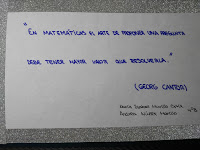 "EN MATEMÁTICAS EL ARTE DE PROPONER UNA PREGUNTA
DEBE TENER MAYOR VALOR QUE RESOLVERLA."
(GEORG CANTOR)